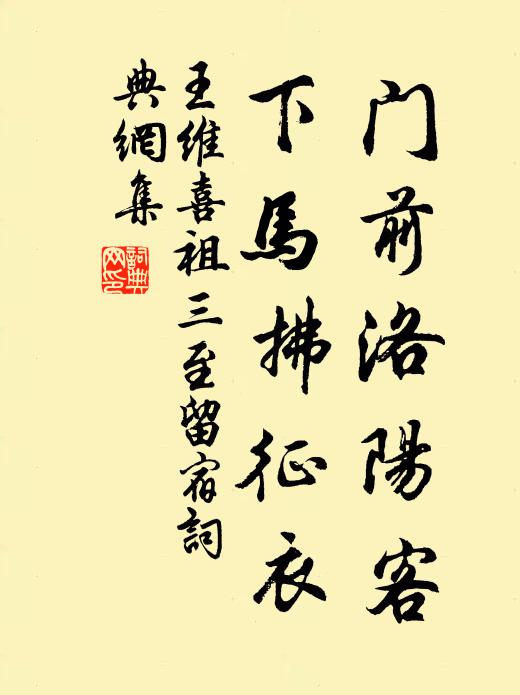 门前洛陽客
下馬拂征衣
王维喜祖三至留宿詞
典網集
詞典
网印